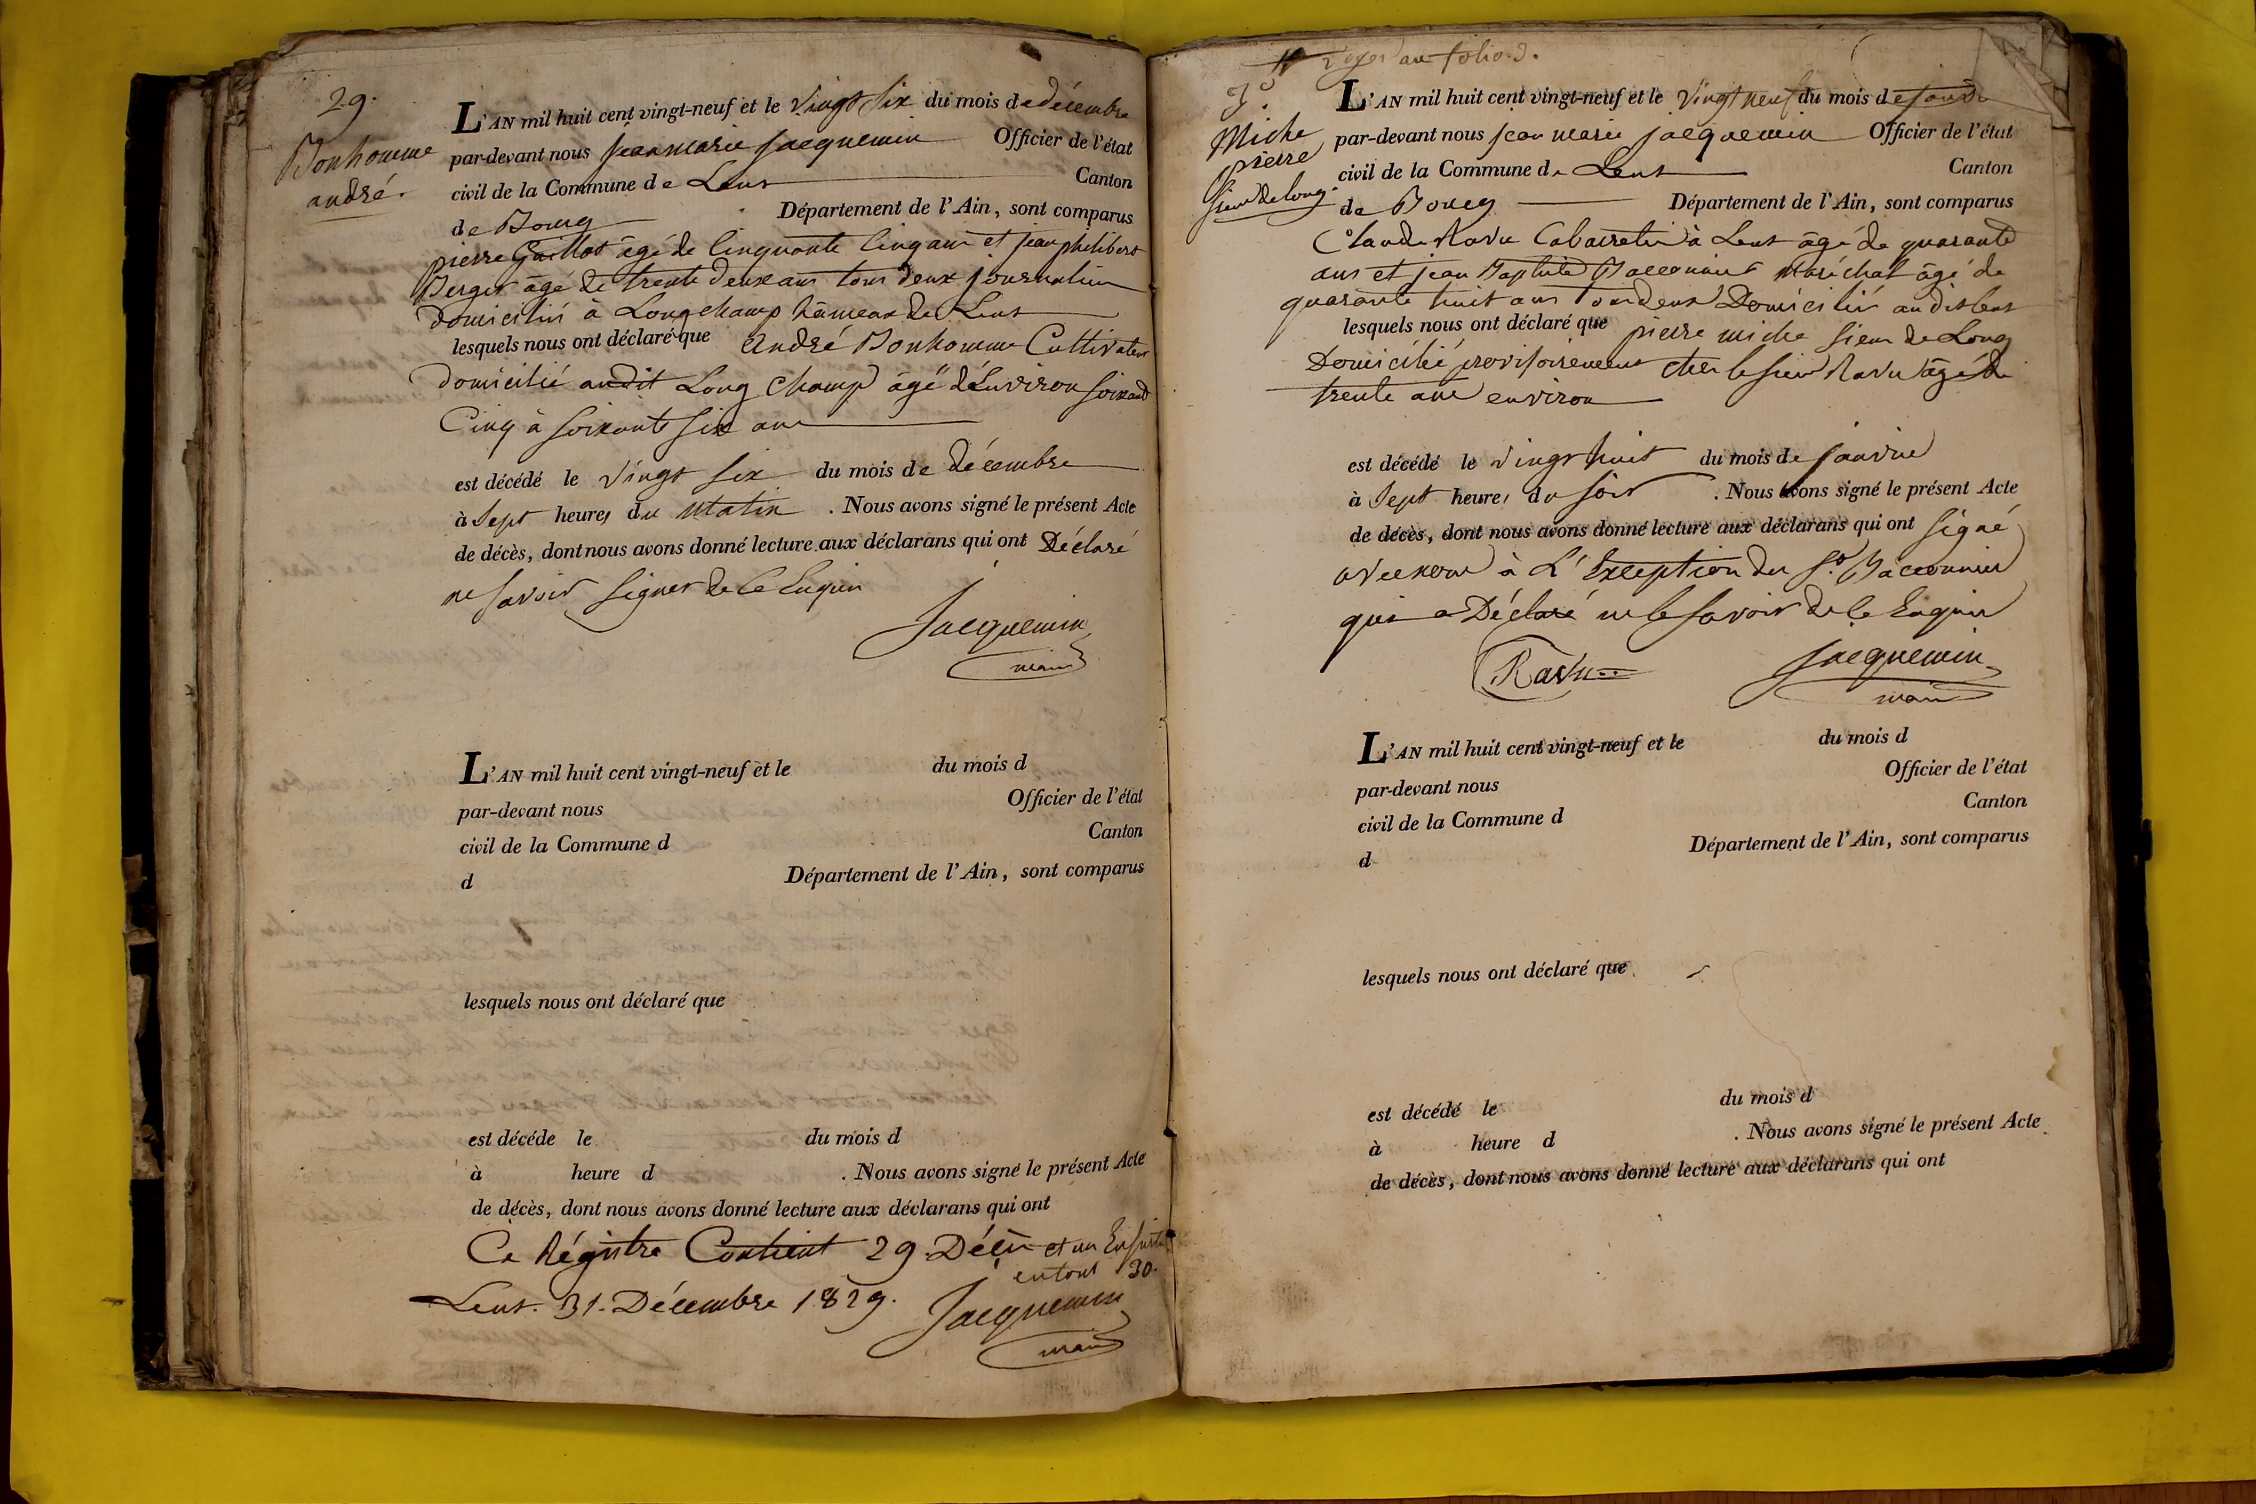 29.
Bonhomme
andré.
L'AN mil huit cent vingt-neuf et le vingt six du mois de décembre
par-devant nous jean marie jacquemin Officier de l'état
civil de la Commune de Lent Canton
de Bourg Département de l'Ain, sont comparus
pierre Guillot âgé de Cinquante Cinq ans et jean philibert
Berger âgé de trente deux ans tous deux journalier
domiciliés à Longchamp hameau de Lent
lesquels nous ont déclaré que André Bonhomme Cultivateur
domicilié audit Long champ âgé d'Environ soixante
Cinq à soixante six ans
est décédé le vingt six du mois de décembre
à Sept heures du Matin . Nous avons signé le présent Acte
de décès, dont nous avons donné lecture aux déclarans qui ont Déclaré
ne savoir signer de Ce Enquis
Jacquemin
maire
L'AN mil huit cent vingt-neuf et le du mois d
par-devant nous Officier de l'état
civil de la Commune d Canton
d Département de l'Ain, sont comparus
lesquels nous ont déclaré que
est décéde le du mois d
à heure d . Nous avons signé le présent Acte
de décès, dont nous avons donné lecture aux déclarans qui ont
Ce Régistre Contient 29 Décès et un Ensuite
en tout 30.
Lent. 31. Décembre 1829.
Jacquemin
maire
au folio 3.
Miche
pierre
sieur de Long.
L'AN mil huit cent vingt-neuf et le vingt neuf du mois de
par-devant nous jean marie jacquemin Officier de l'état
civil de la Commune de Lent Canton
de Bourg Département de l'Ain, sont comparus
Claude Ravu Cabaretier à Lent âgé de quarante
ans et jean Baptiste Bacconnier Maréchal âgé de
quarante huit ans Tous deux Domiciliés audit Lent
lesquels nous ont déclaré que pierre miche sieur de Long
Domicilié provisoirement chez le sieur Ravu âgé de
trente ans environ
est décédé le vingt huit du mois de janvier
à Sept heures du soir . Nous avons signé le présent Acte
de décès, dont nous avons donné lecture aux déclarans qui ont signé
avec nous à L'Exception du Sr. Bacconnier
qui a Déclaré ne le savoir de Ce Enquis
Ravu
Jacquemin
maire
L'AN mil huit cent vingt-neuf et le du mois d
par-devant nous Officier de l'état
civil de la Commune d Canton
d Département de l'Ain, sont comparus
lesquels nous ont déclaré que
est décédé le du mois d
à heure d . Nous avons signé le présent Acte
de décès, dont nous avons donné lecture aux déclarans qui ont